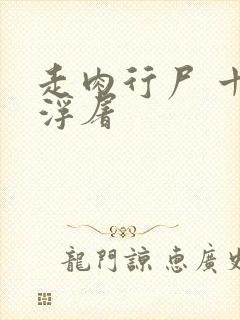 走肉行尸
浮屠
龍門諒惠廣